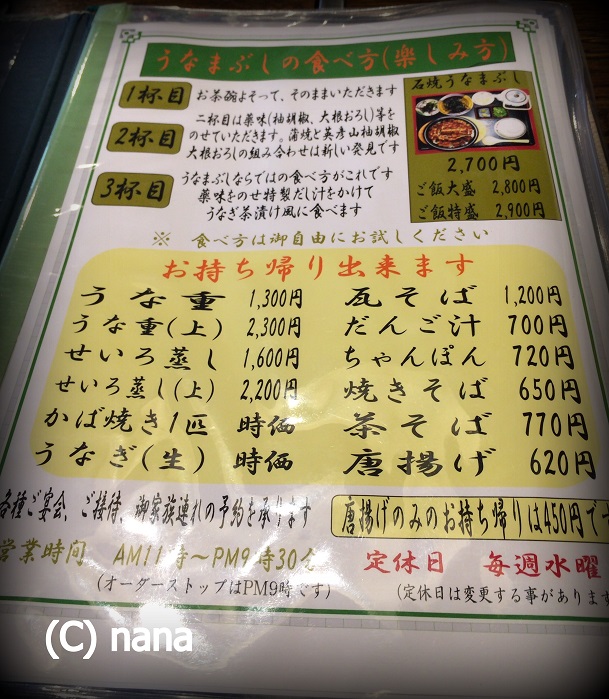 うなまぶしの食べ方(楽しみ方)
1杯目 お茶碗よそって、そのままいただきます
2杯目 二杯目は薬味(柚胡椒、大根おろし)等を
のせていただきます。蒲焼と英彦山柚胡椒
大根おろしの組み合わせは新しい発見です
3杯目 うなまぶしならではの食べ方がこれです
薬味をのせ特製だし汁をかけて
うなぎ茶漬け風に食べます
石焼うなまぶし
2,700円
ご飯大盛 2,800円
ご飯特盛 2,900円
※ 食べ方は御自由にお試しください
お持ち帰り出来ます
うな重 1,300円 瓦そば 1,200円
うな重(上) 2,300円 だんご汁 700円
せいろ蒸し 1,600円 ちゃんぽん 720円
せいろ蒸し(上) 2,200円 焼きそば 650円
かば焼き1匹 時価 茶そば 770円
うなぎ(生) 時価 唐揚げ 620円
各種ご宴会、ご接待、御家族連れの予約を承ります
唐揚げのみのお持ち帰りは450円です
営業時間 AM11時〜PM9時30分
(オーダーストップはPM9時です)
定休日 毎週水曜
(定休日は変更する事があります
(C) nana